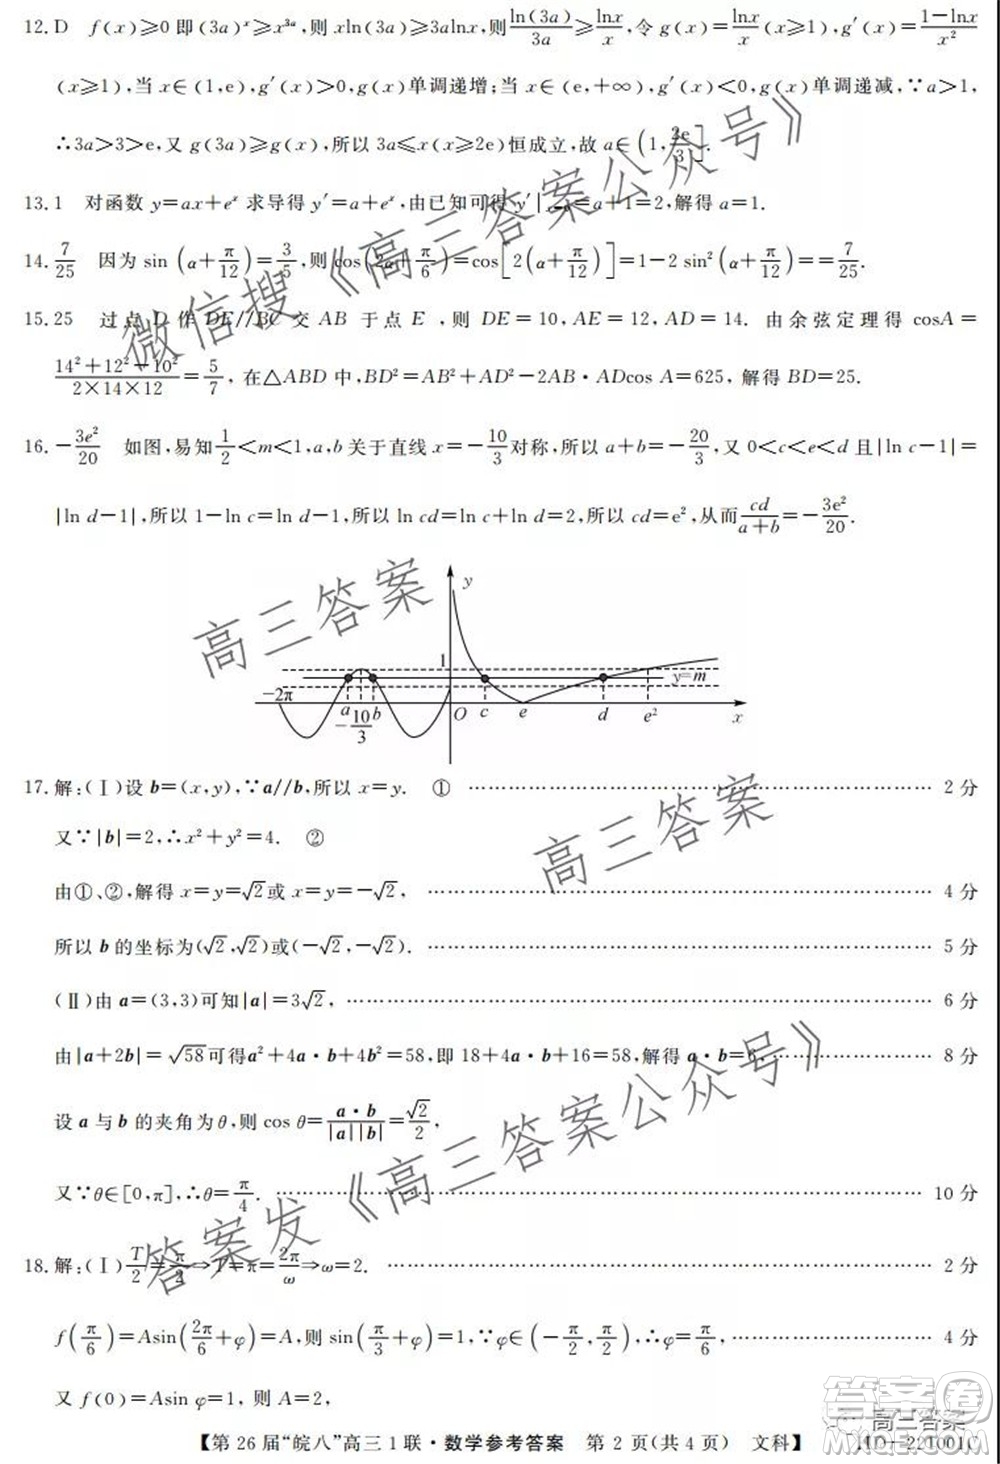 12. D  f(x)≥0 即 (3a)^x≥x^{3a}, 则 xln(3a)≥3alnx, 则 ln(3a)/3a≥lnx/x, 令 g(x)=lnx/x(x≥1), g′(x)=(1−lnx)/x²
(x≥1), 当 x∈(1,e), g′(x)>0, g(x)单调递增; 当 x∈(e,+∞), g′(x)<0, g(x)单调递减, ∵a>1,
∴3a>3>e, 又 g(3a)≥g(x), 所以 3a≤x(x≥2e)恒成立, 故 a∈(1, 2e/3].
13. 1  对函数 y=ax+e^x 求导得 y′=a+e^x, 由已知可得 y′| =a+1=2, 解得 a=1.
14. 7/25  因为 sin(α+π/12)=3/5, 则 cos(2α+π/6)=cos[2(α+π/12)]=1−2 sin²(α+π/12)==7/25.
15. 25  过点 D 作 DE//BC 交 AB 于点 E, 则 DE=10, AE=12, AD=14. 由余弦定理得 cosA=
(14²+12²−10²)/(2×14×12)=5/7, 在△ABD 中, BD²=AB²+AD²−2AB·ADcos A=625, 解得 BD=25.
16. −3e²/20  如图, 易知 1/2<m<1, a,b 关于直线 x=−10/3 对称, 所以 a+b=−20/3, 又 0<c<e<d 且|ln c−1|=
|ln d−1|, 所以 1−ln c=ln d−1, 所以 ln cd=ln c+ln d=2, 所以 cd=e², 从而 cd/(a+b)=−3e²/20.
y
1
y=m
−2π
a −10/3 b O c e d e² x
17. 解:(Ⅰ)设 b=(x,y), ∵a//b, 所以 x=y.  ① ……………… 2 分
又∵|b|=2, ∴x²+y²=4.  ②
由①、②, 解得 x=y=√2或 x=y=−√2, ……………… 4 分
所以 b 的坐标为(√2,√2)或(−√2,−√2). ……………… 5 分
(Ⅱ)由 a=(3,3)可知|a|=3√2, ……………… 6 分
由|a+2b|=√58可得a²+4a·b+4b²=58, 即 18+4a·b+16=58, 解得 a·b=6, ……………… 8 分
设 a 与 b 的夹角为θ, 则 cos θ=a·b/(|a||b|)=√2/2,
又∵θ∈[0,π], ∴θ=π/4. ……………… 10 分
18. 解:(Ⅰ)T/2=π/2⇒T=π=2π/ω⇒ω=2. ……………… 2 分
f(π/6)=Asin(2π/6+φ)=A, 则 sin(π/3+φ)=1, ∵φ∈(−π/2,π/2), ∴φ=π/6, ……………… 4 分
又 f(0)=Asin φ=1, 则 A=2,
【第 26 届“皖八”高三 1 联·数学参考答案  第 2 页(共 4 页)  文科】
微信搜《高三答案公众号》
高三答案
高三答案
答案发《高三答案公众号》
高三答案
答案圈